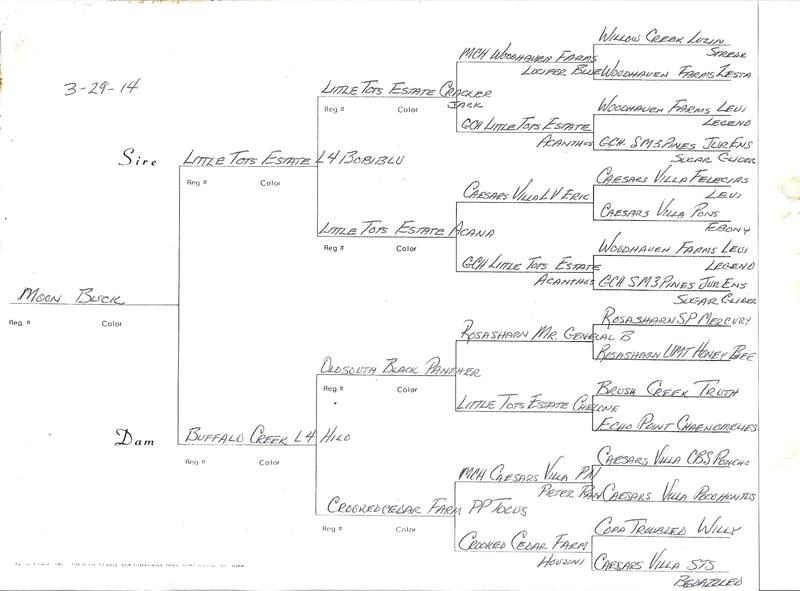 Willow Creek Luzin
Streak
MCH Woodhaven Farms
Lucifer Blue
Woodhaven Farms Zesta
3-29-14
Little Tots Estate Cracker
Jack
Reg.# Color
Woodhaven Farms Levi
Legend
GCH Little Tots Estate
Acanthus
GCH. SM3Pines Jur Ens
Sugar Glider
Sire
Little Tots Estate L4 Bobiblu
Reg # Color
Caesars Villa Felecias
Levi
Caesars Villa LV Eric
Caesars Villa Pons
Ebony
Little Tots Estate Acana
Reg.# Color
Woodhaven Farms Levi
Legend
GCH Little Tots Estate
Acanthus
GCH SM3Pines Jur Ens
Sugar Glider
Moon Buck
Reg. # Color
Rosasharn SP Mercury
Rosasharn Mr. General B
Rosasharn UMT Honey Bee
Oldsouth Black Panther
Reg.# Color
Brush Creek Truth
Little Tots Estate Chelone
Echo Point Chaenomelies
Dam
Buffalo Creek L4 Hilo
Reg # Color
Caesars Villa CBS Poncho
MCH Caesars Villa PN
Peter Pan
Caesars Villa Pocohontus
Crookedcedar Farm PP Tocus
Reg.# Color
Copa Troubled Willy
Crooked Cedar Farm
Houdini
Caesars Villa STS
Bedazzled